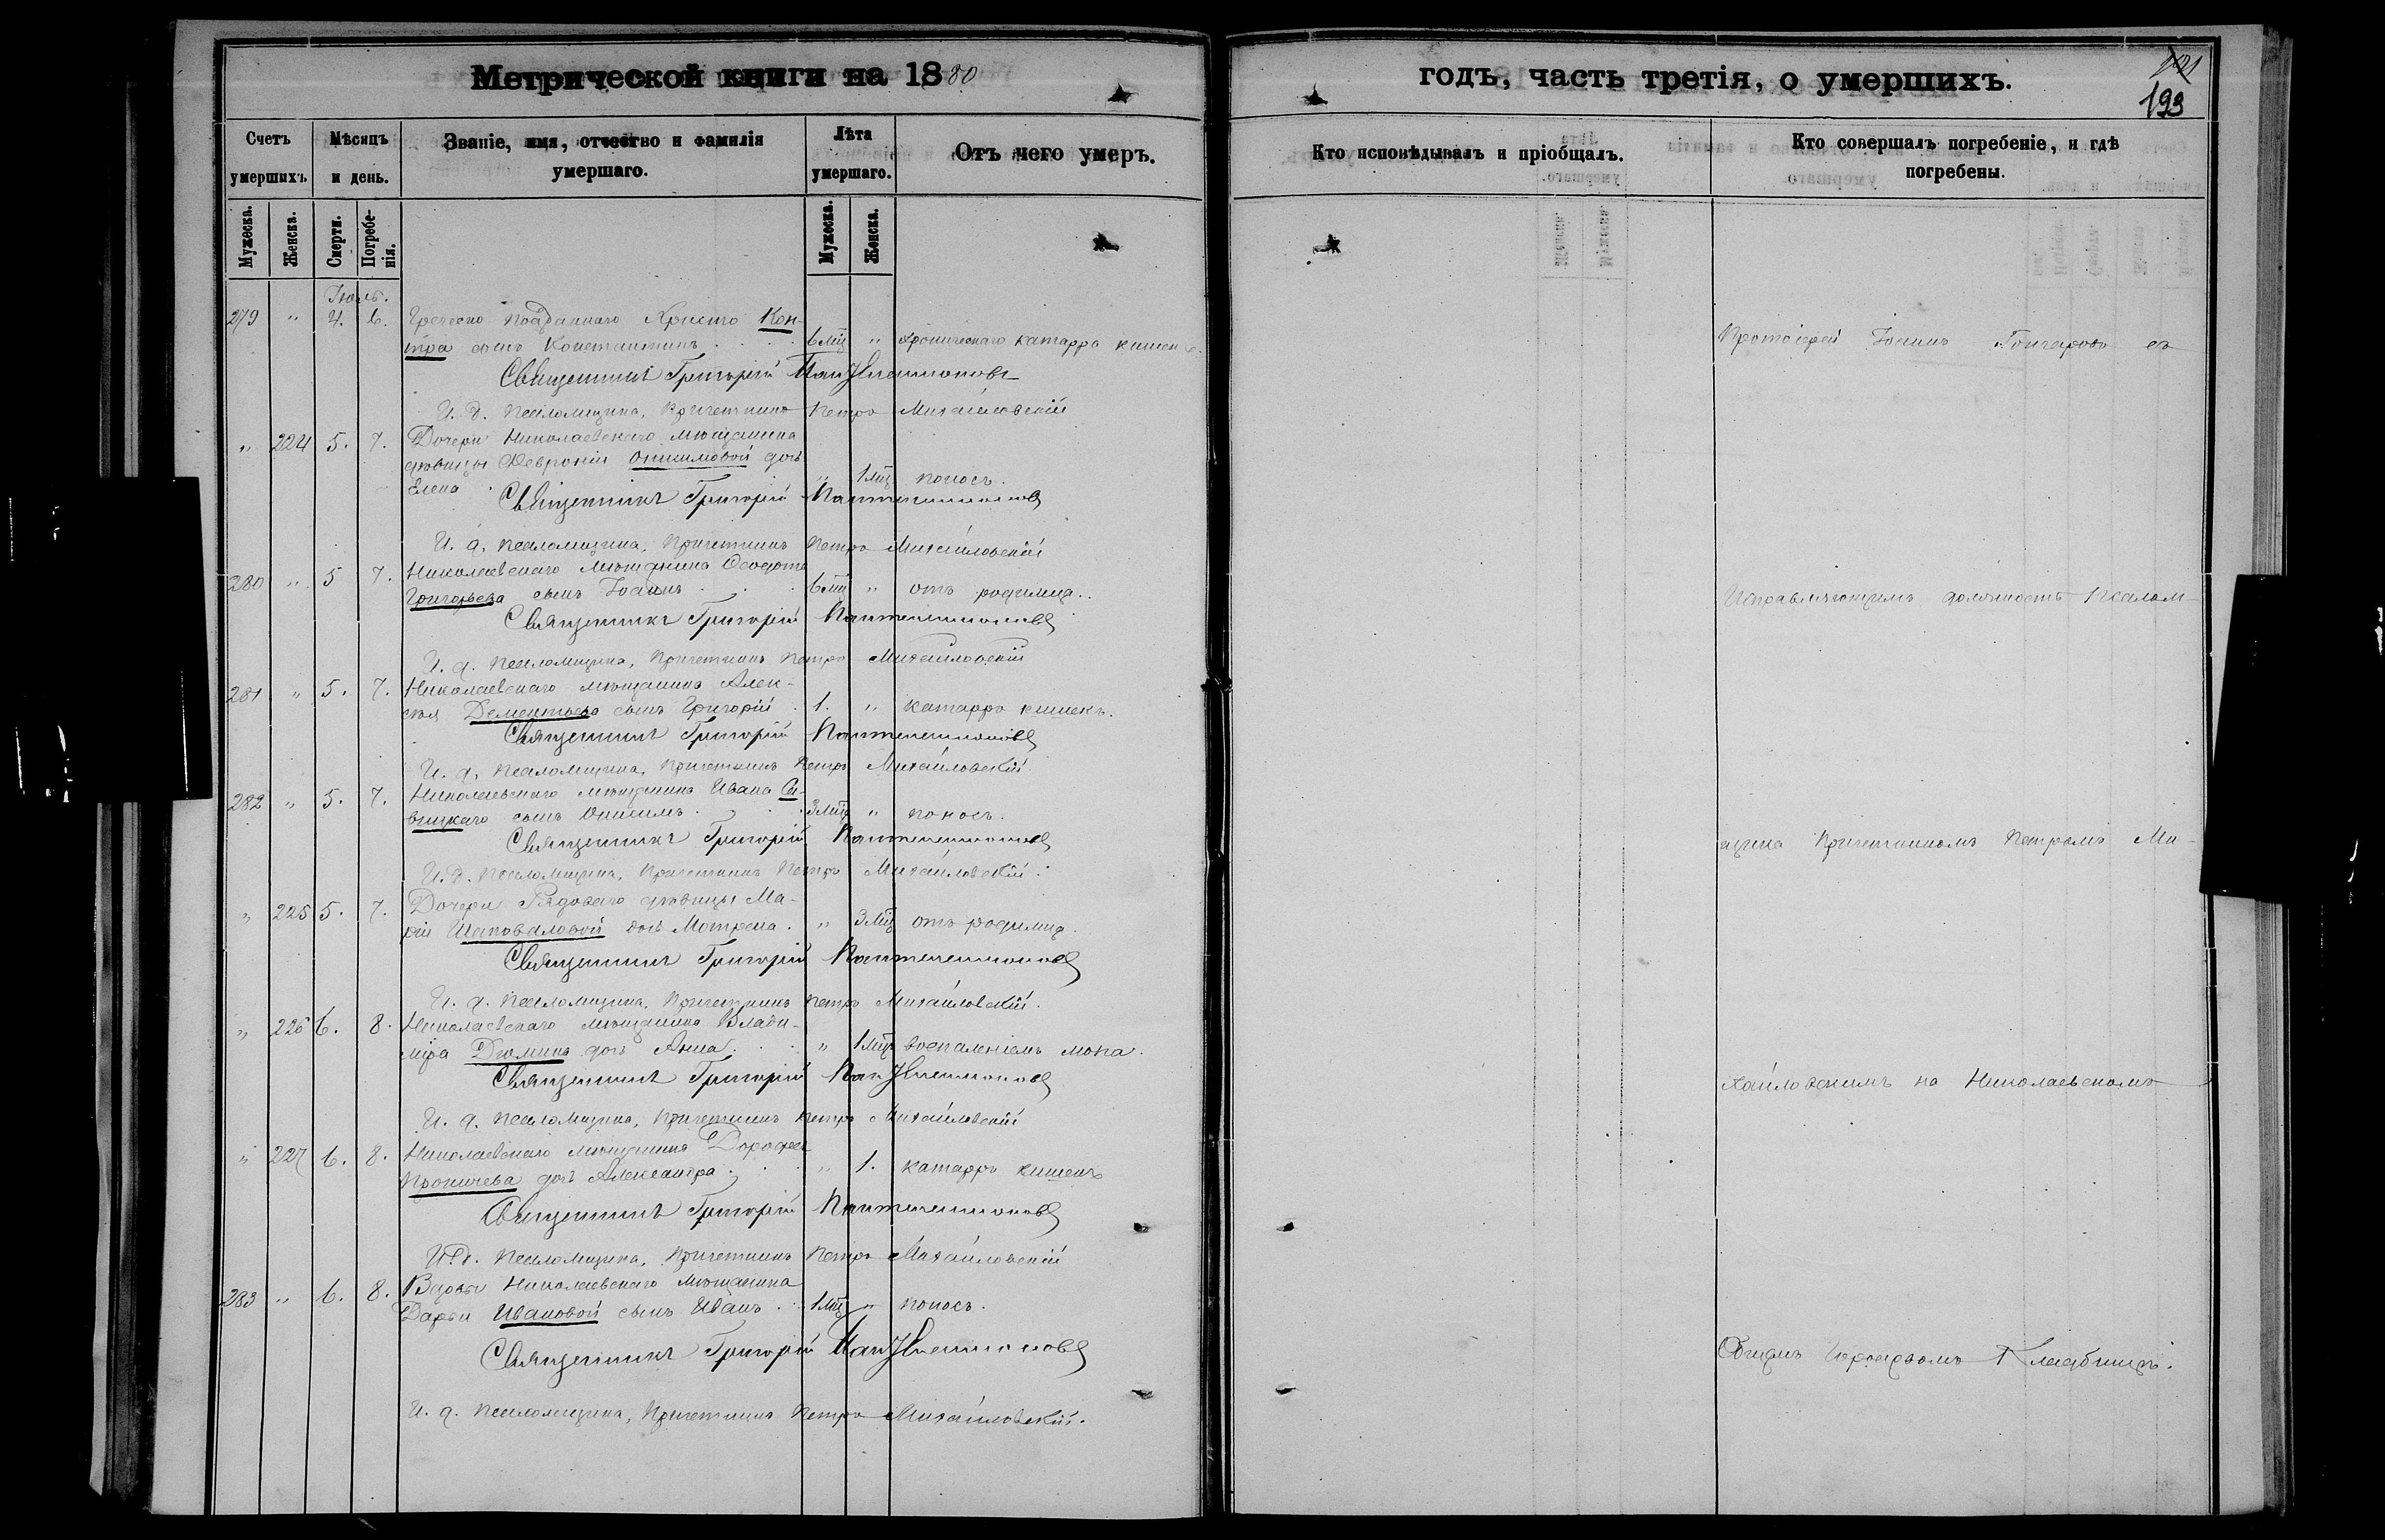 Метрической книги на 1880
годъ, часть третія, о умершихъ.
193
Счетъ умершихъ.
Мѣсяцъ и день.
Званіе, имя, отчество и фамилія умершаго.
Лѣта умершаго.
Отъ чего умеръ.
Кто исповѣдывалъ и пріобщалъ.
Кто совершалъ погребеніе, и гдѣ погребены.
Мужеска.
Женска.
Смерти.
Погребенія.
Мужеска.
Женска.
Іюль.
279 " 4. 6. Греческо подданнаго Христо Кон-
тра сынъ Константинъ 6 мц " хроническаго катарра кишекъ.
Священникъ Григорій Пантелеимоновъ
И. д. псаломщика, Причетникъ Петръ Михайловскій
" 224 5. 7. Дочери Николаевскаго мѣщанина
дѣвицы Февроніи Онисимовой дочь
Елена " 1 мц поносъ.
Священникъ Григорій Пантелеимоновъ
И. д. псаломщика, Причетникъ Петръ Михайловскій
280 " 5 7. Николаевскаго мѣщанина Ѳеодота
Григорьева сынъ Іоаннъ 6 мц " отъ родимца.
Священникъ Григорій Пантелеимоновъ
И. д. псаломщика, Причетникъ Петръ Михайловскій
281 " 5. 7. Николаевскаго мѣщанина Алек-
сѣя Дементьева сынъ Григорій 1. " катарръ кишекъ.
Священникъ Григорій Пантелеимоновъ
И. д. псаломщика, Причетникъ Петръ Михайловскій
282 " 5. 7. Николаевскаго мѣщанина Ивана Са-
вицкаго сынъ Онисимъ 3 мц " поносъ.
Священникъ Григорій Пантелеимоновъ
И. д. псаломщика, Причетникъ Петръ Михайловскій
" 225 5. 7. Дочери Рядоваго дѣвицы Ма-
ріи Шаповаловой дочь Мотрена. " 3 мц отъ родимца.
Священникъ Григорій Пантелеимоновъ
И. д. псаломщика, Причетникъ Петръ Михайловскій.
" 226 6. 8. Николаевскаго мѣщанина Влади-
міра Дюмина дочь Анна " 1 мц воспаленіемъ мозга.
Священникъ Григорій Пантелеимоновъ
И. д. псаломщика, Причетникъ Петръ Михайловскій
" 227 6. 8. Николаевскаго мѣщанина Дорофея
Проничева дочь Александра " 1. катарръ кишекъ
Священникъ Григорій Пантелеимоновъ
И. д. псаломщика, Причетникъ Петръ Михайловскій
283 " 6. 8. Вдовы Николаевскаго мѣщанина
Дарьи Ивановой сынъ Иванъ 1 мц " поносъ.
Священникъ Григорій Пантелеимоновъ
И. д. псаломщика, Причетникъ Петръ Михайловскій.
Протоіерей Іоаннъ Гончаровъ съ
Исправляющимъ должность псалом-
щика Причетникомъ Петромъ Ми-
хайловскимъ на Николаевскомъ
Общемъ Городскомъ Кладбищѣ.